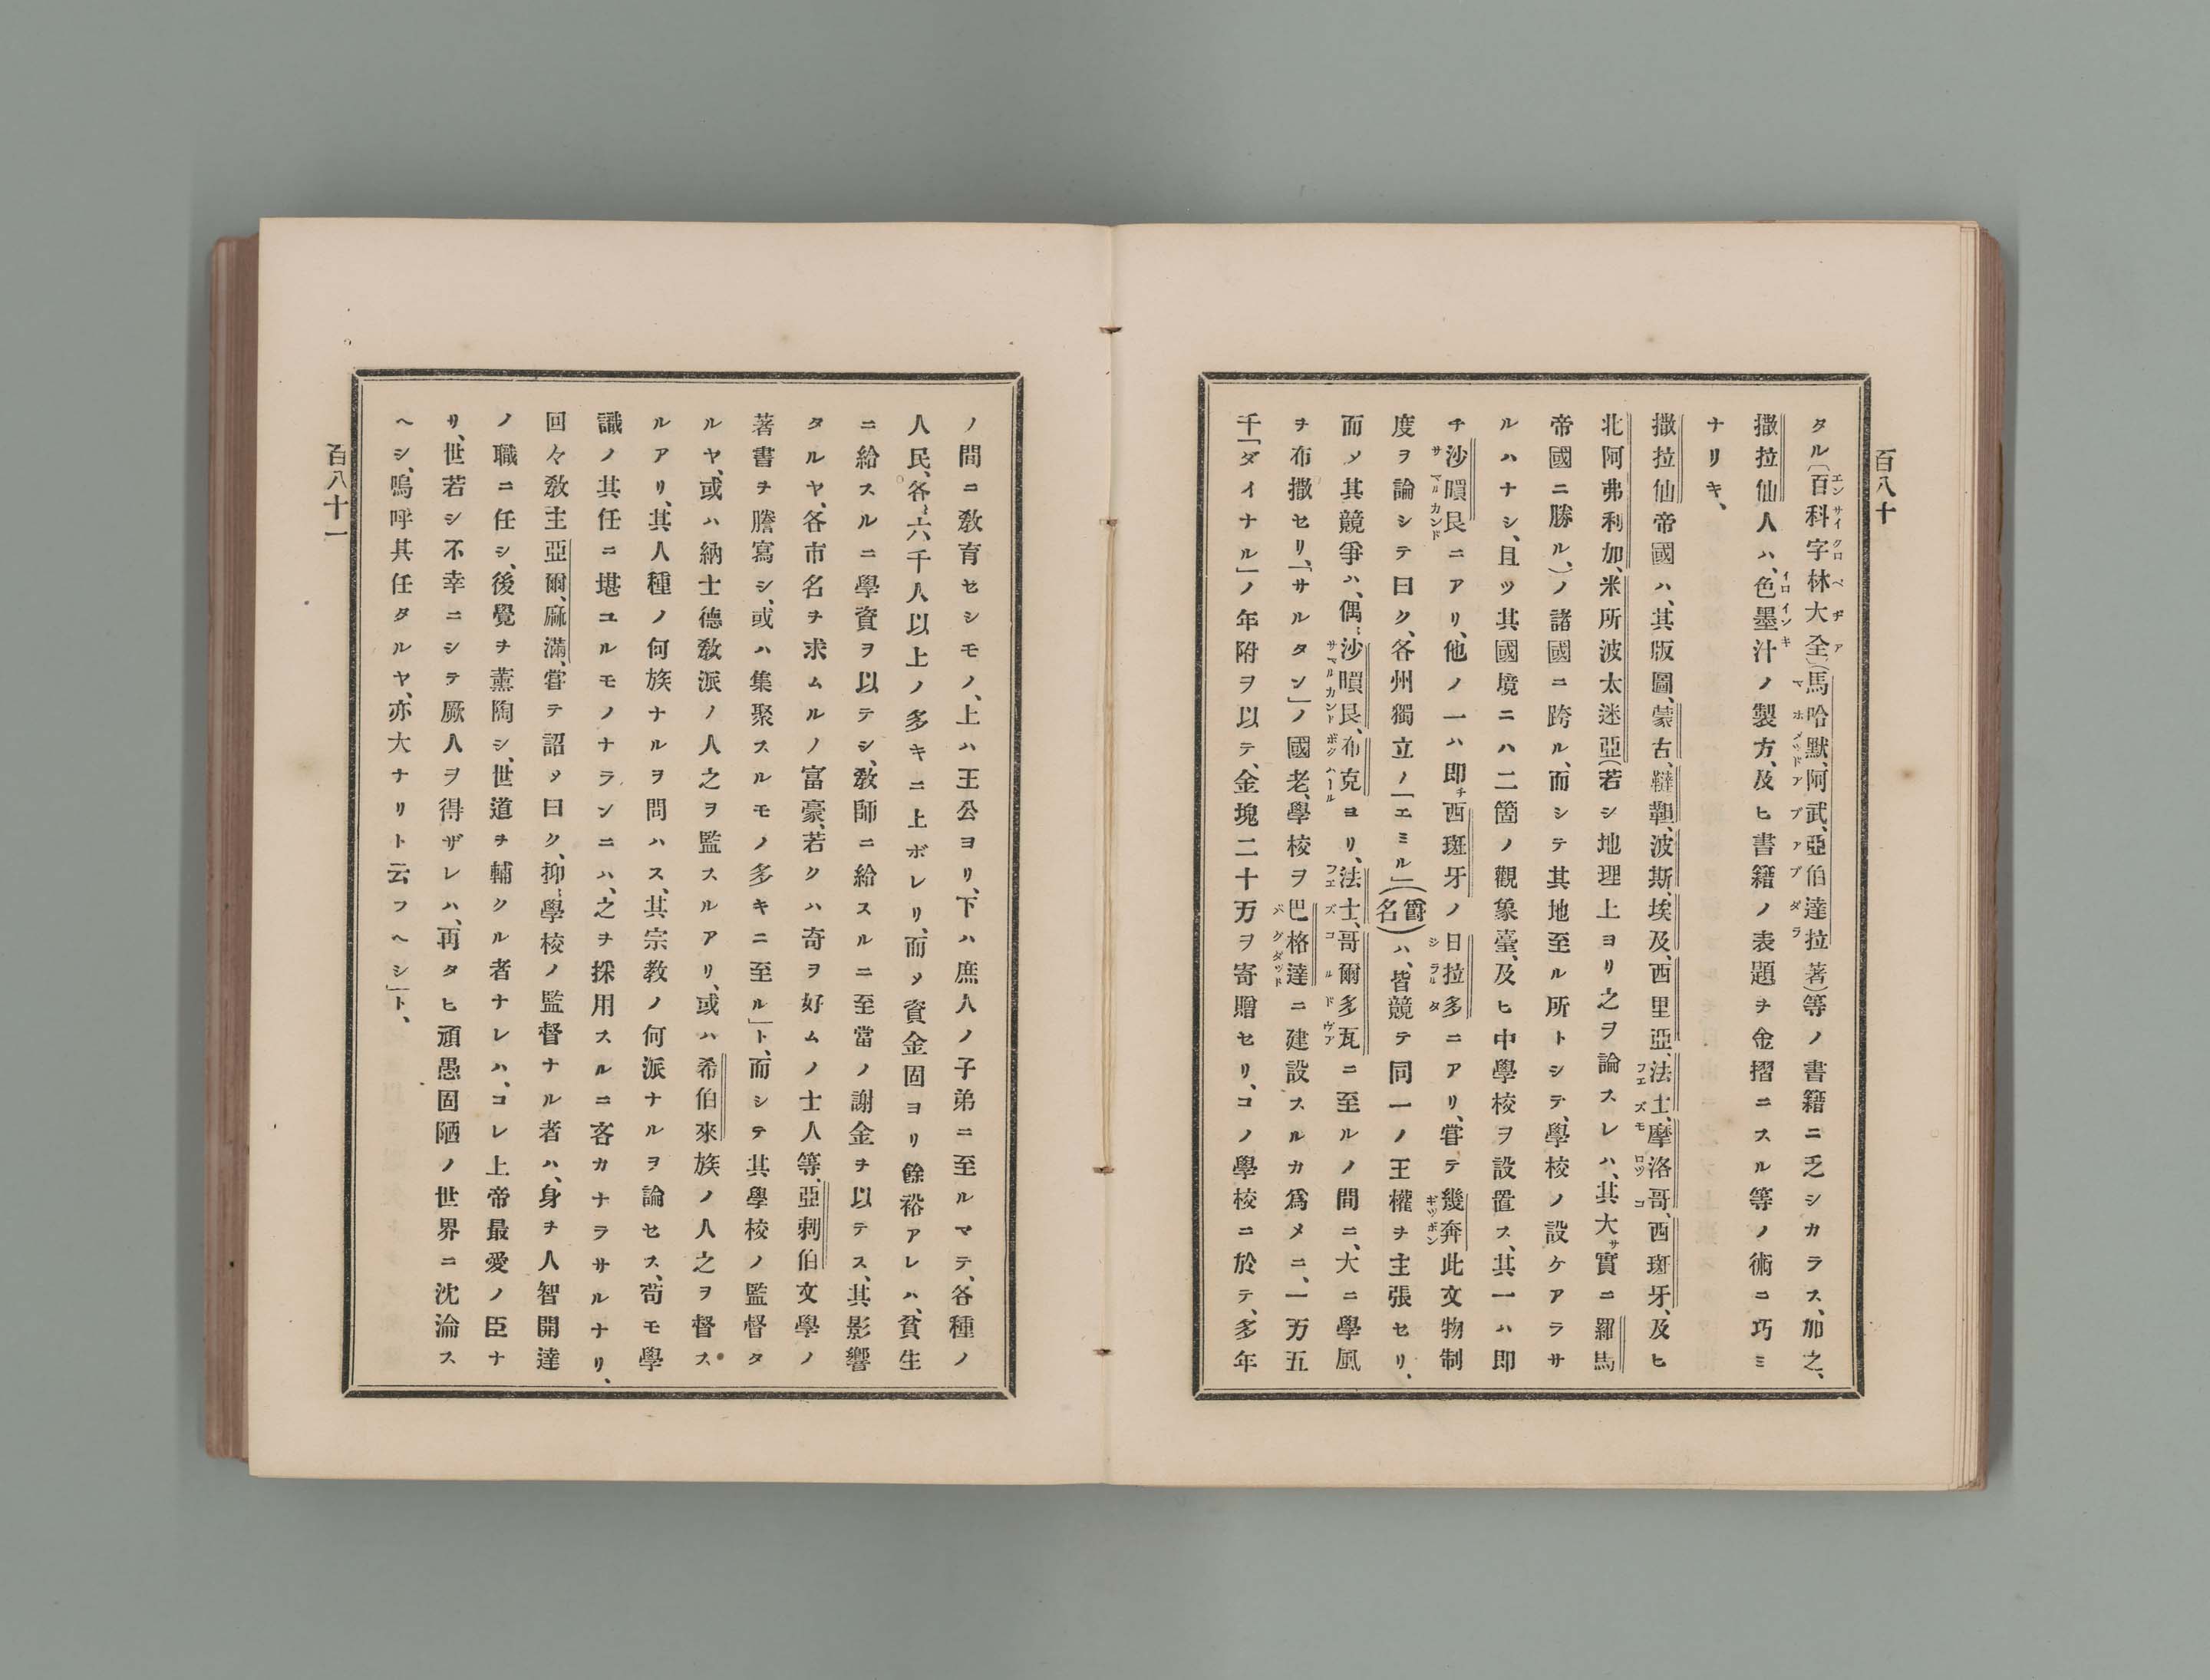 百八十
タル〔百科字林大全〕(馬哈默、阿武、亞伯達拉著)等ノ書籍ニ乏シカラス、加之、
撒拉仙人ハ、色墨汁ノ製方、及ヒ書籍ノ表題ヲ金摺ニスル等ノ術ニ巧ミ
ナリキ、
撒拉仙帝國ハ、其版圖、蒙古、韃靼、波斯、埃及、西里亞、法士、摩洛哥、西班牙、及ヒ
北阿弗利加、米所波太迷亞(若シ地理上ヨリ之ヲ論スレハ、其大サ實ニ羅馬
帝國ニ勝ル、)ノ諸國ニ跨ル、而シテ其地至ル所トシテ、學校ノ設ケアラサ
ルハナシ、且ツ其國境ニハ二箇ノ觀象臺、及ヒ中學校ヲ設置ス、其一ハ即
チ沙㬋艮ニアリ、他ノ一ハ即チ西班牙ノ日拉多ニアリ、甞テ幾奔此文物制
度ヲ論シテ曰ク、各州獨立ノ「エミル」(爵名)ハ、皆競テ同一ノ王權ヲ主張セリ、
而メ其競爭ハ、偶〻沙㬋艮、布克ヨリ、法士、哥爾多瓦ニ至ルノ間ニ、大ニ學風
ヲ布撒セリ、「サルタン」ノ國老、學校ヲ巴格達ニ建設スルカ爲メニ、一万五
千「ダイナル」ノ年附ヲ以テ、金塊二十万ヲ寄贈セリ、コノ學校ニ於テ、多年
ノ間ニ敎育セシモノ、上ハ王公ヨリ、下ハ庶人ノ子弟ニ至ルマテ、各種ノ
人民、各〻六千人以上ノ多キニ上ボレリ、而メ資金固ヨリ餘裕アレハ、貧生
ニ給スルニ學資ヲ以テシ、敎師ニ給スルニ至當ノ謝金ヲ以テス、其影響
タルヤ、各市名ヲ求ムルノ富豪、若クハ奇ヲ好ムノ士人等、亞剌伯文學ノ
著書ヲ謄寫シ、或ハ集聚スルモノ多キニ至ル」ト、而シテ其學校ノ監督タ
ルヤ、或ハ納士德敎派ノ人之ヲ監スルアリ、或ハ希伯來族ノ人之ヲ督ス
ルアリ、其人種ノ何族ナルヲ問ハス、其宗教ノ何派ナルヲ論セス、苟モ學
識ノ其任ニ堪ユルモノナランニハ、之ヲ採用スルニ吝カナラサルナリ、
回々敎主亞爾、麻滿、甞テ詔メ曰ク、抑〻學校ノ監督ナル者ハ、身ヲ人智開達
ノ職ニ任シ、後覺ヲ薰陶シ、世道ヲ輔クル者ナレハ、コレ上帝最愛ノ臣ナ
リ、世若シ不幸ニシテ厥人ヲ得ザレハ、再タヒ頑愚固陋ノ世界ニ沈淪ス
ヘシ、嗚呼其任タルヤ、亦大ナリト云フヘシ」ト、
百八十一